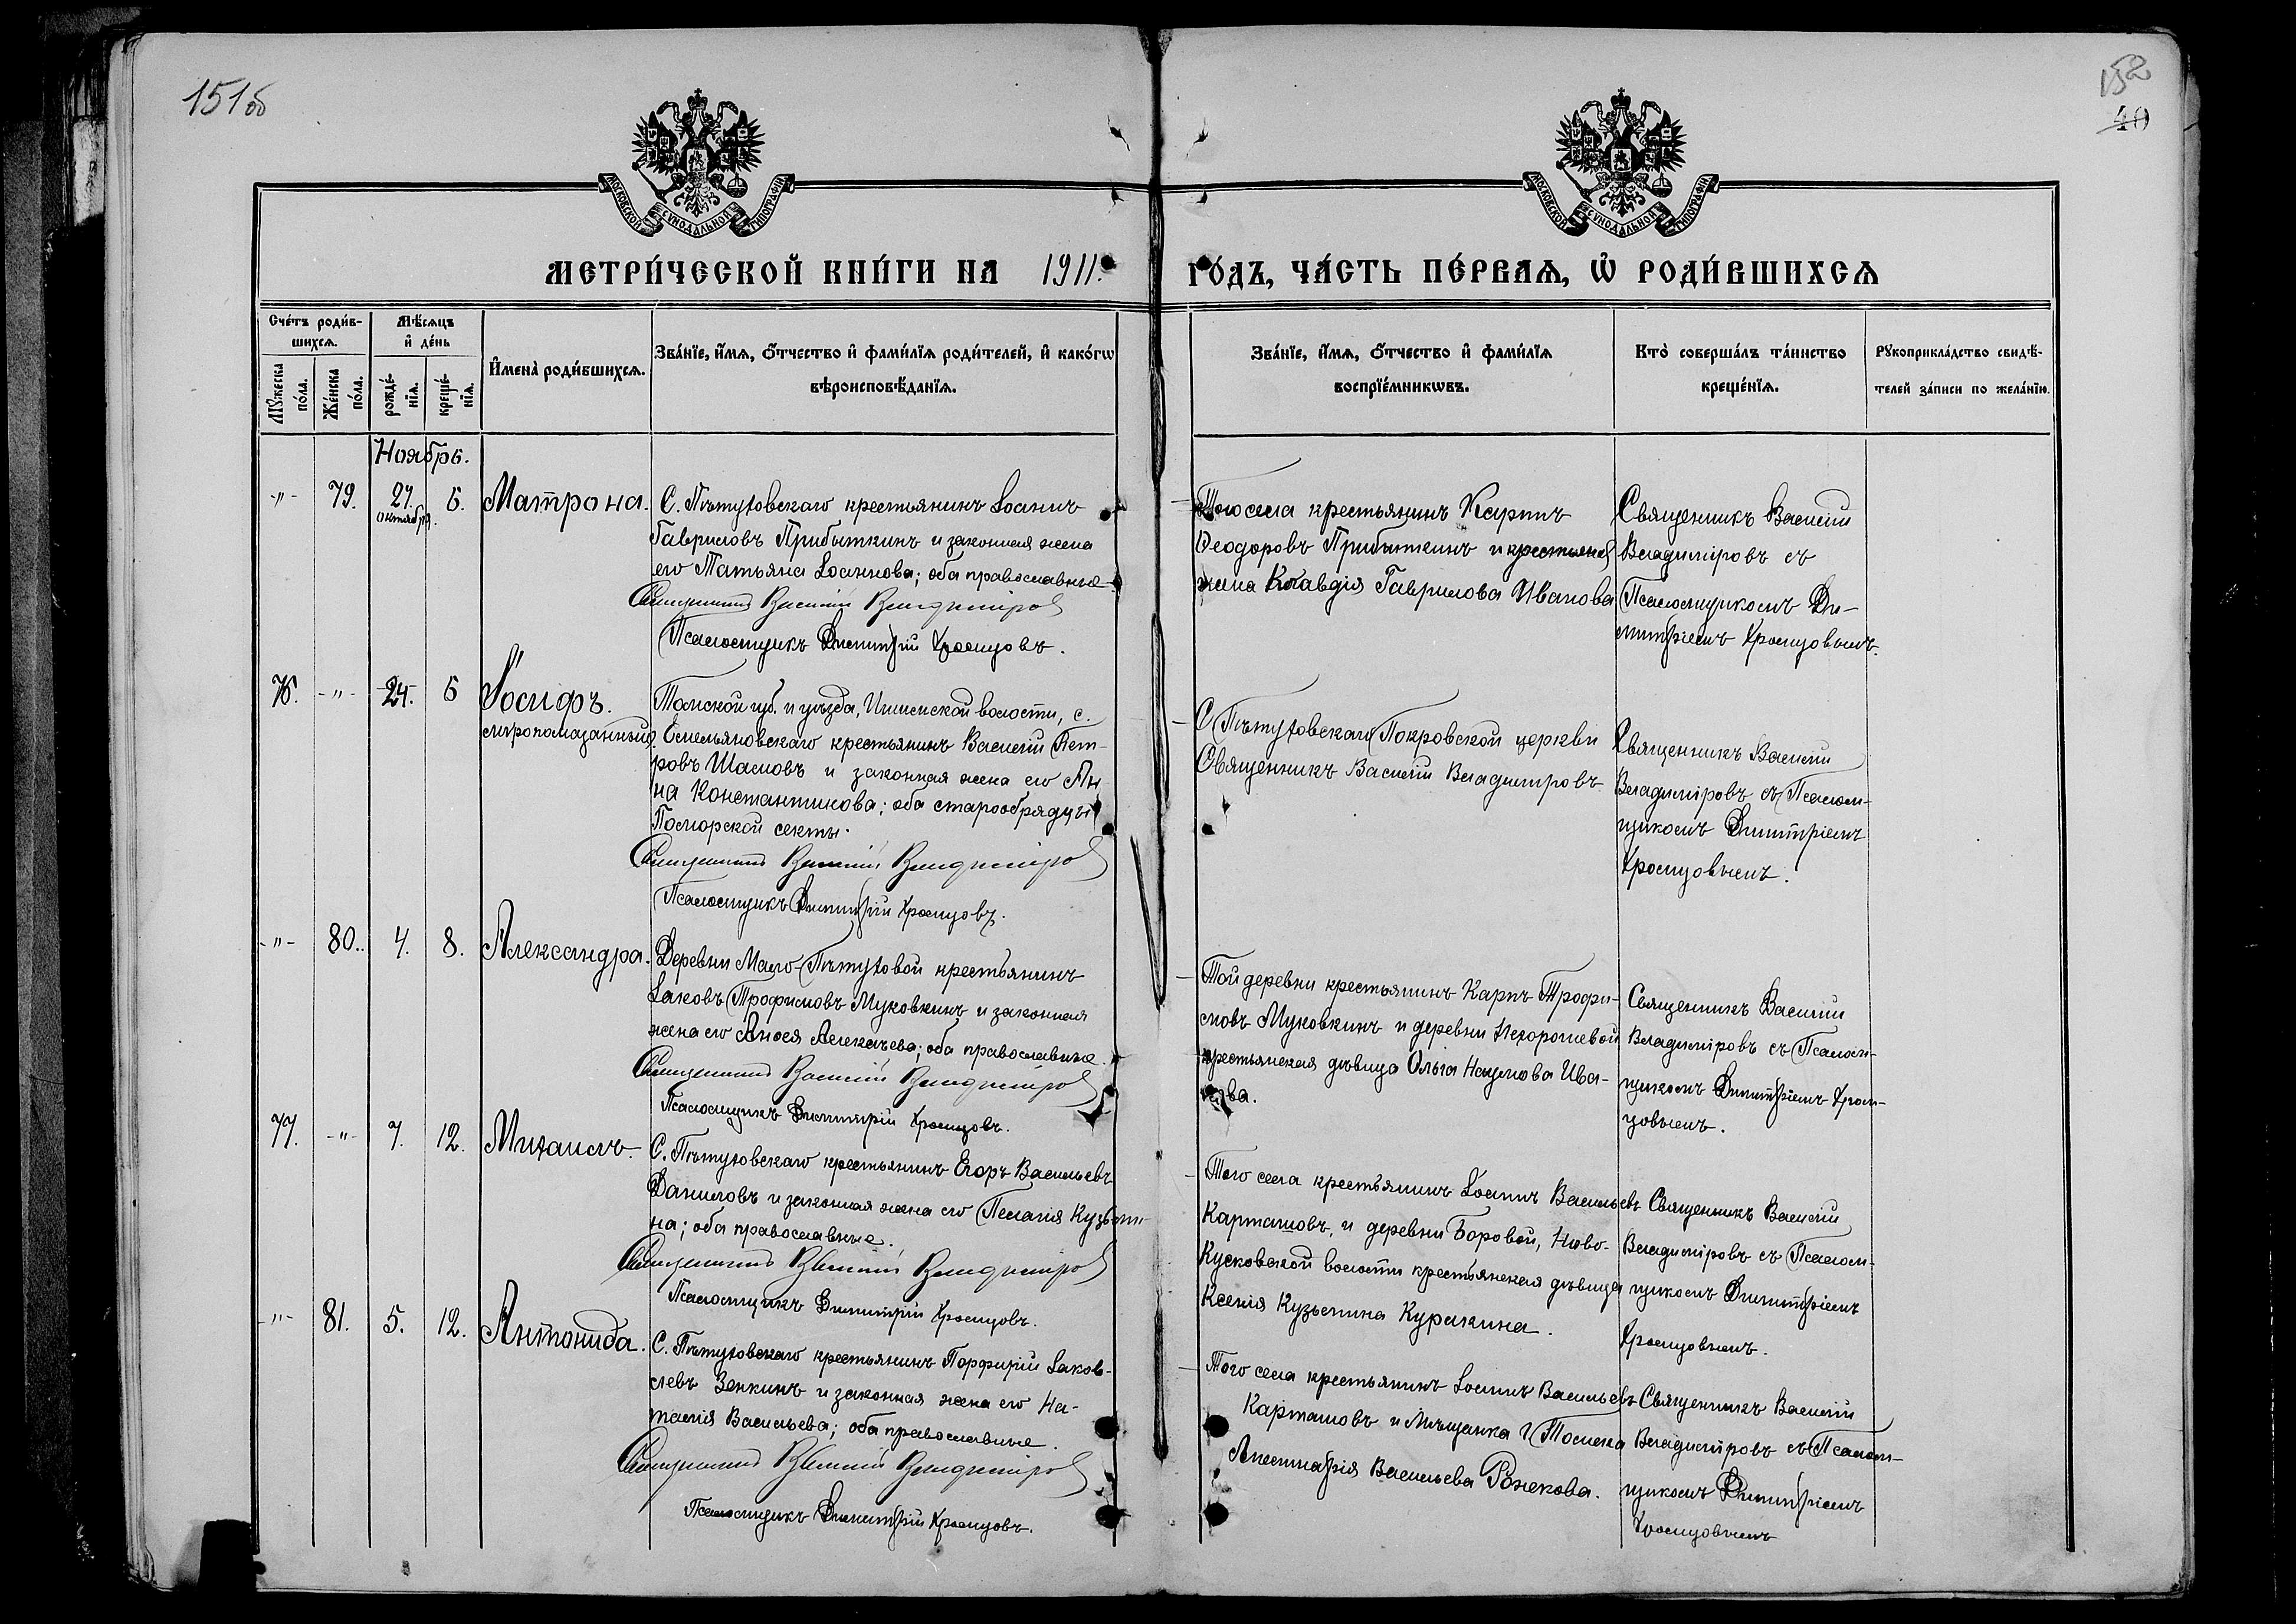 151 об
152
40
МОСКОВСКОЙ СѴНОДАЛЬНОЙ ТИПОГРАФІИ
МОСКОВСКОЙ СѴНОДАЛЬНОЙ ТИПОГРАФІИ
МЕТРИ́ЧЕСКОЙ КНИ́ГИ НА 1911. ГО́ДЪ, ЧА́СТЬ ПЕ́РВАѦ, Ѡ҆ РОДИ́ВШИХСѦ
Сче́тъ роди́в-
шихсѧ.
Мꙋ́жеска по́ла.
Же́нска по́ла.
Мѣ́сѧцъ
и҆ де́нь
рожде́-
нїѧ.
креще́-
нїѧ.
И҆мена̀ роди́вшихсѧ.
Зва́нїе, и҆́мѧ, ѻ҆́тчество и҆ фами́лїѧ роди́телей, и҆ како́гѡ
вѣроисповѣ́данїѧ.
Зва́нїе, и҆́мѧ, ѻ҆́тчество и҆ фами́лїѧ
воспрїе́мникѡвъ.
Кто̀ соверша́лъ та́инство
креще́нїѧ.
Рꙋкоприкла́дство свидѣ́-
телей за́писи по жела́нїю.
Ноябрь.
-"- 79. 27. октября. 6. Матрона.
С. Пѣтуховскаго крестьянинъ Іоаннъ
Гавриловъ Прибыткинъ и законная жена
его Татьяна Іоаннова; оба православные
Священникъ Василій Владиміровъ
Псаломщикъ Димитрій Хромцовъ.
Того села крестьянинъ Карпъ
Ѳеодоровъ Прибыткинъ и крестьянск
жена Клавдія Гаврилова Иванова
Священникъ Василій
Владиміровъ съ
Псаломщикомъ Ди-
митріемъ Хромцовымъ.
76. -"- 24. 6 Іосифъ.
мѵропомазанный.
Томской губ. и уѣзда, Ишимской волости, с.
Емельяновскаго крестьянинъ Василій Пет-
ровъ Шаловъ и законная жена его Ан-
на Константинова; оба старообрядцы
Поморской секты.
Священникъ Василій Владиміровъ
Псаломщикъ Димитрій Хромцовъ.
С Пѣтуховскаго Покровской церкви
Священникъ Василій Владиміровъ
Священникъ Василій
Владиміровъ съ Псалом-
щикомъ Димитріемъ
Хромцовымъ.
-"- 80. 4. 8. Александра.
Деревни Мало-Пѣтуховой крестьянинъ
Іаковъ Трофимовъ Муковкинъ и законная
жена его Алексѣева; оба православные.
Священникъ Василій Владиміровъ
Псаломщикъ Димитрій Хромцовъ.
Той деревни крестьянинъ Карпъ Трофи-
мовъ Муковкинъ и деревни Нехорошевой
крестьянская дѣвица Ольга Наумова Ива-
нова.
Священникъ Василій
Владиміровъ съ Псалом-
щикомъ Димитріемъ Хром-
цовымъ.
77. -"- 7. 12. Михаилъ.
С. Пѣтуховскаго крестьянинъ Егоръ Васильевъ
Даниловъ и законная жена его Пелагія Кузьми-
на; оба православные.
Священникъ Василій Владиміровъ
Псаломщикъ Димитрій Хромцовъ.
Того села крестьянинъ Іоаннъ Васильевъ
Карташовъ, и деревни Боровой, Ново-
Кусковской волости крестьянская дѣвица
Ксенія Кузьмина Куракина.
Священникъ Василій
Владиміровъ съ Псалом-
щикомъ Димитріемъ
Хромцовымъ.
-"- 81. 5. 12. Антонида.
С. Пѣтуховскаго крестьянинъ Порфирій Іаков-
левъ Зенкинъ и законная жена его На-
талія Васильева; оба православные.
Священникъ Василій Владиміровъ
Псаломщикъ Димитрій Хромцовъ.
Того села крестьянинъ Іоаннъ Васильевъ
Карташовъ и Мѣщанка г Томска
Васильева
Священникъ Василій
Владиміровъ съ Псалом-
щикомъ Димитріемъ
Хромцовымъ